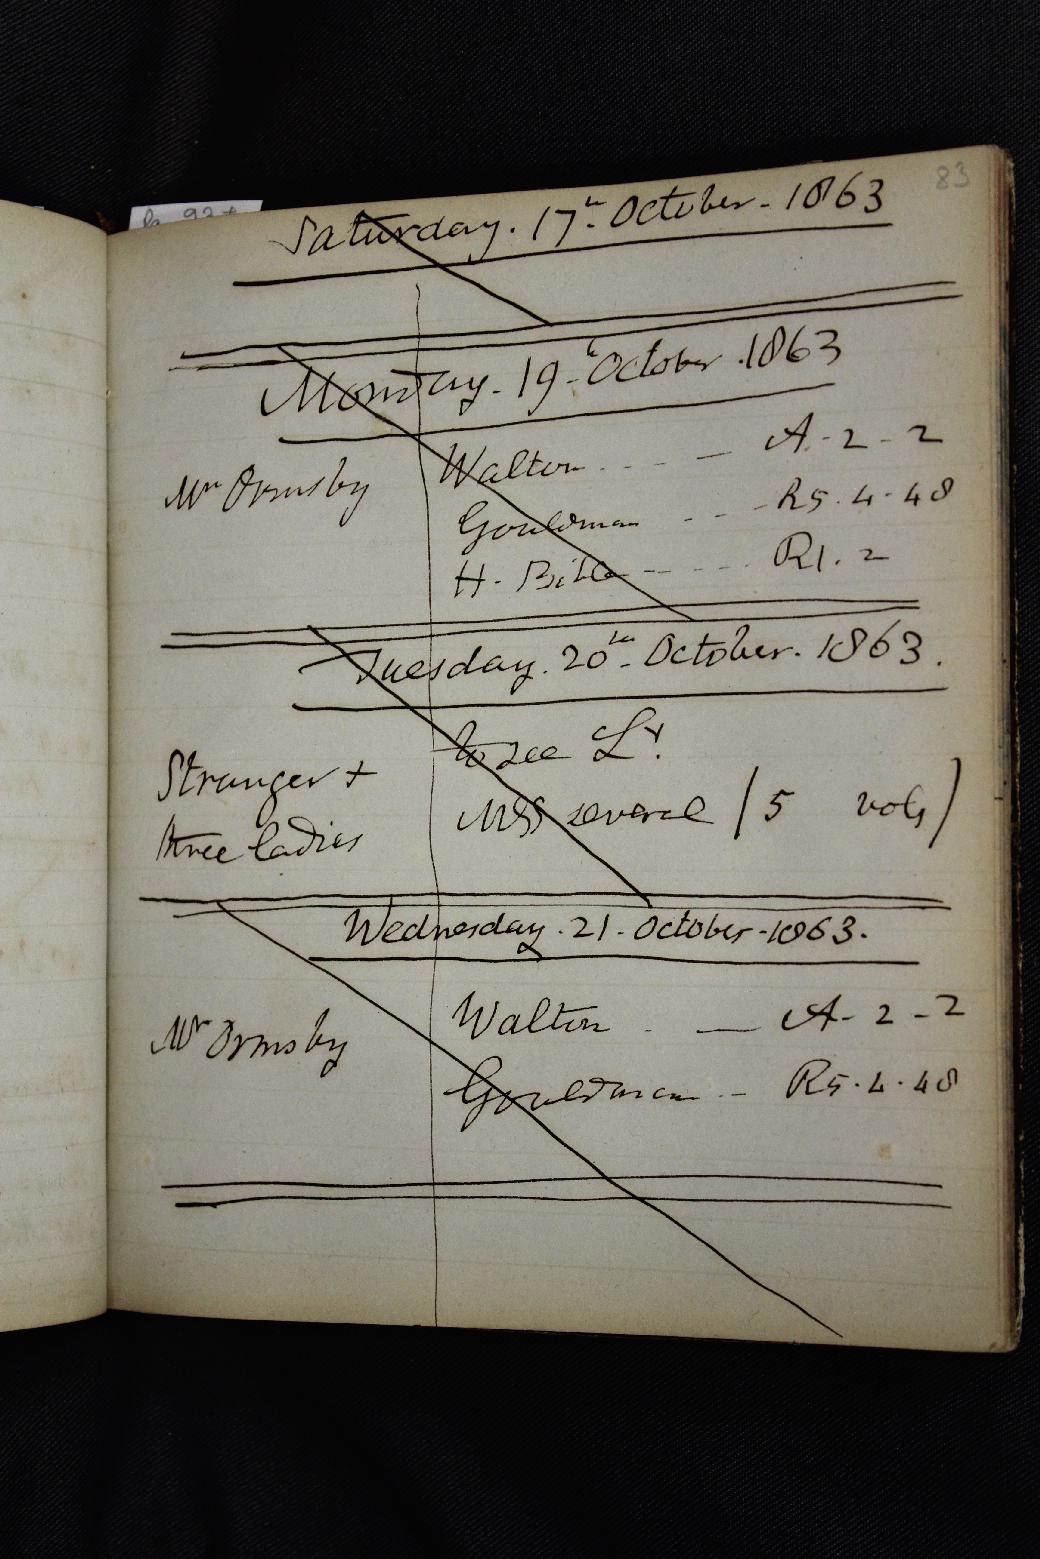 83
Saturday. 17th October - 1863
Monday - 19th October . 1863
Mr Ormsby Walton - - - - A - 2 - 2
Gouldman - - - R5 . 4 . 48
H - Bible - - - - - R1 . 2
Tuesday . 20th October . 1863 .
to see Ly.
Stranger + MSS several (5 vols)
three ladies
Wednesday . 21 . October - 1863 .
Mr Ormsby Walton - — A - 2 - 2
Gouldman - - R5 . 4 . 48